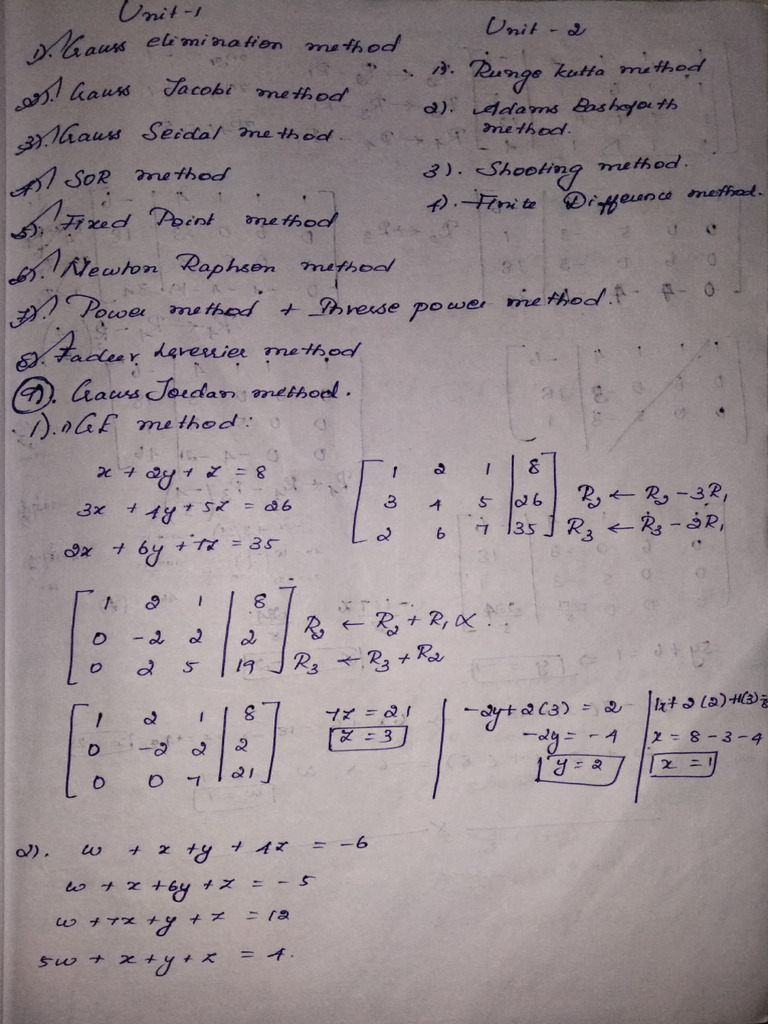 Unit-1
1). Gauss elimination method
2). Gauss Jacobi method
3). Gauss Seidal method
4). SOR method
5). Fixed Point method
6). Newton Raphson method
7). Power method + Inverse power method.
8). Fadeev Leverrier method
9). Gauss Jordan method.
Unit - 2
1). Runge kutta method
2). Adams Bashforth
method.
3). Shooting method.
4). Finite Difference method.
1). 1) GE method:
x + 2y + z = 8
3x + 4y + 5z = 26
2x + 6y + 7z = 35
1 2 1 | 8
3 4 5 | 26 R2 ← R2 - 3R1
2 6 7 | 35 R3 ← R3 - 2R1
1 2 1 | 8
0 -2 2 | 2 R2 ← R2 + R1
0 2 5 | 19 R3 ← R3 + R2
1 2 1 | 8
0 -2 2 | 2
0 0 7 | 21
7z = 21
z = 3
-2y + 2(3) = 2
-2y = -4
y = 2
1x + 2(2) + 1(3) = 8
x = 8 - 3 - 4
x = 1
2). w + x + y + 4z = -6
w + x + 6y + z = -5
w + 7x + y + z = 12
5w + x + y + z = 4.